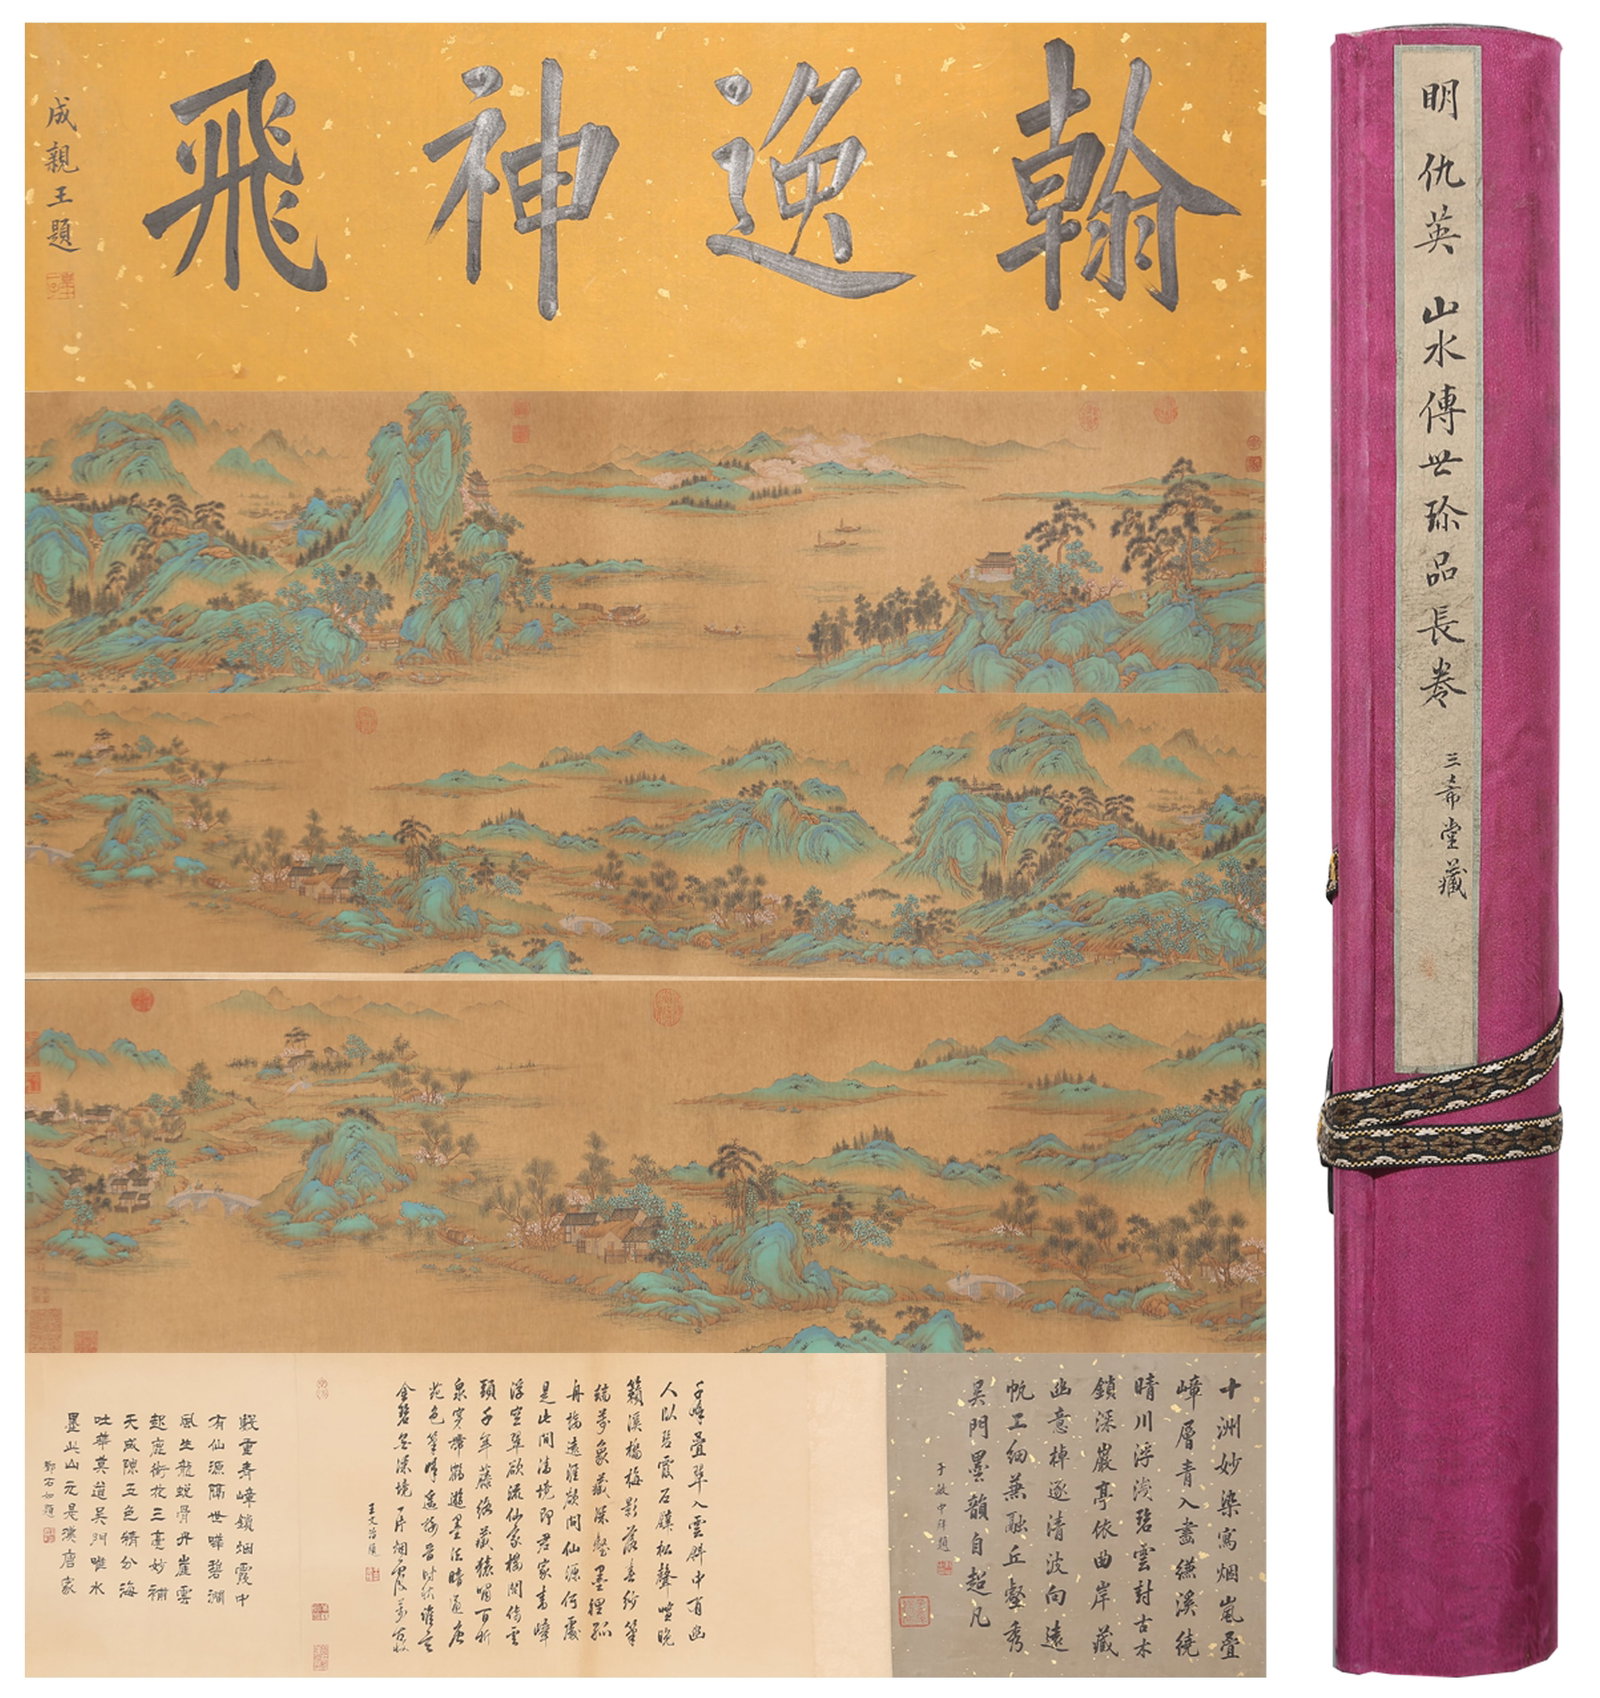 翰逸神飛
成親王題
明 仇英 山水傳世珍品長卷 三希堂藏
十洲妙染寫烟嵐疊
嶂層青入畫縑溪繞
晴川浮淺碧雲封古木
鎖深巖亭依曲岸藏
幽意棹逐清波向遠
帆工細兼融丘壑秀
吳門墨韻自超凡
于敏中拜題
千峰疊翠入雲斜中有幽
人臥碧霞石磴松聲喧晚
籟溪橋梅影落春紗筆
端萬象藏深壑墨裡孤
舟檥遠涯欲問仙源何處
是此間清境即君家青嶂
浮空翠欲流仙家樓閣倚雲
頭千年藤絡藏猿嘯百折
泉穿帶鶴遊墨法暗通唐
苑色筆峰遙接晉時秋誰言
金碧無深境一片烟霞萬古收
王文治題
數重青嶂鎖烟霞中
有仙源隔世嘩碧澗
風生龍蛻骨丹崖雲
起鹿銜花三毫妙補
天成隙五色精分海
吐華莫道吳門唯水
墨此山元是漢唐家
鄧石如題